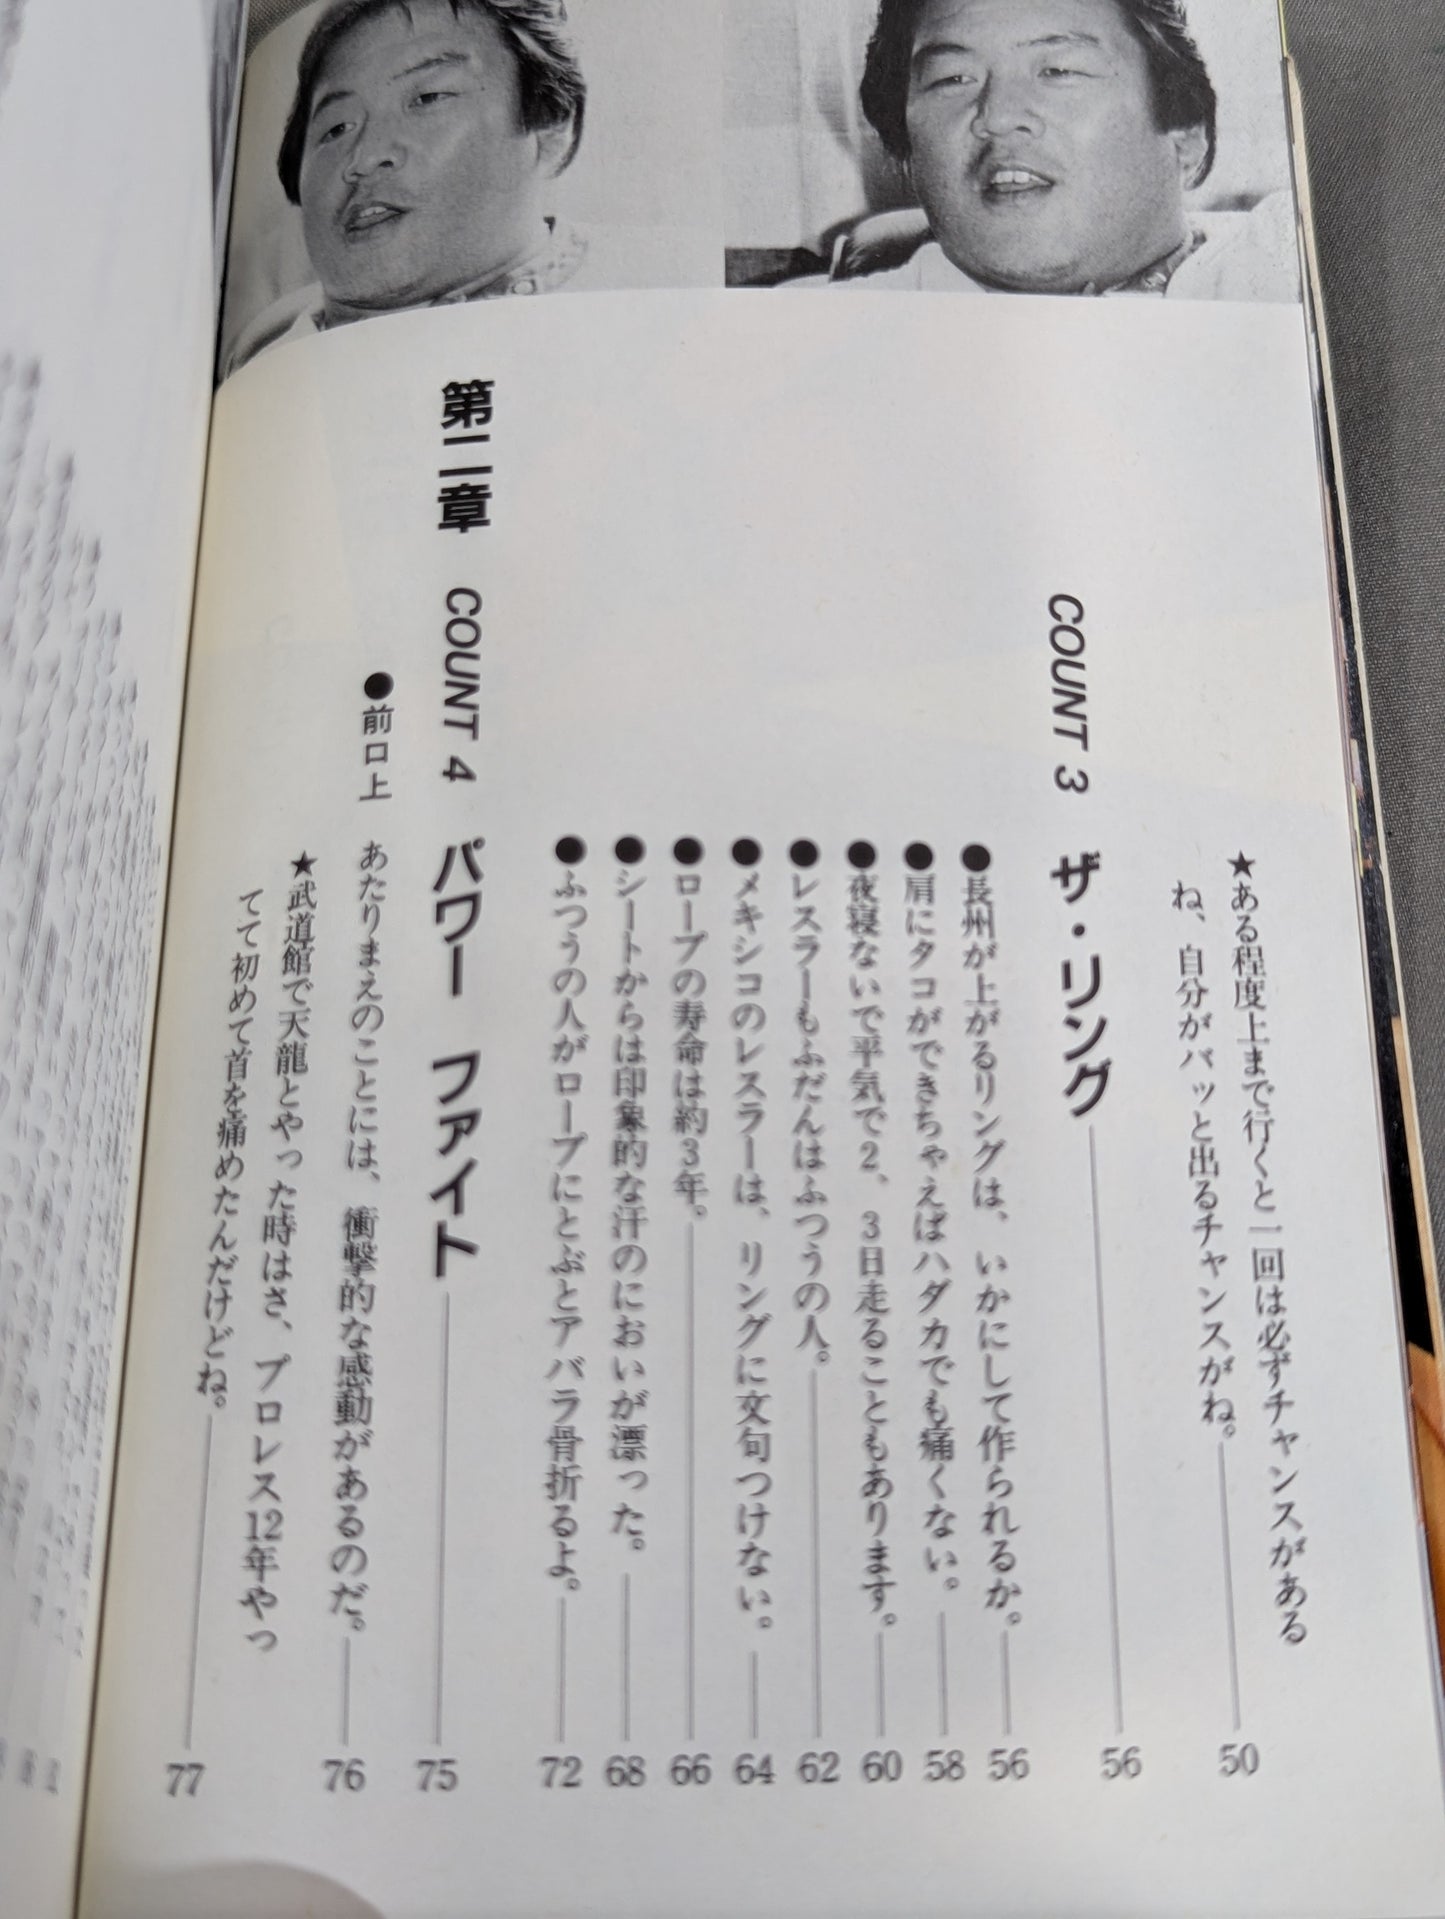 ★ある程度上まで行くと一回は必ずチャンスがある
ね、自分がパッと出るチャンスがね。 50
COUNT 3 ザ・リング 56
●長州が上がるリングは、いかにして作られるか。 56
●肩にタコができちゃえばハダカでも痛くない。 58
●夜寝ないで平気で2、3日走ることもあります。 60
●レスラーもふだんはふつうの人。 62
●メキシコのレスラーは、リングに文句つけない。 64
●ロープの寿命は約3年。 66
●シートからは印象的な汗のにおいが漂った。 68
●ふつうの人がロープにとぶとアバラ骨折るよ。 72
第二章 COUNT 4 パワー ファイト 75
●前口上 あたりまえのことには、衝撃的な感動があるのだ。 76
★武道館で天龍とやった時はさ、プロレス12年やっ
てて初めて首を痛めたんだけどね。 77